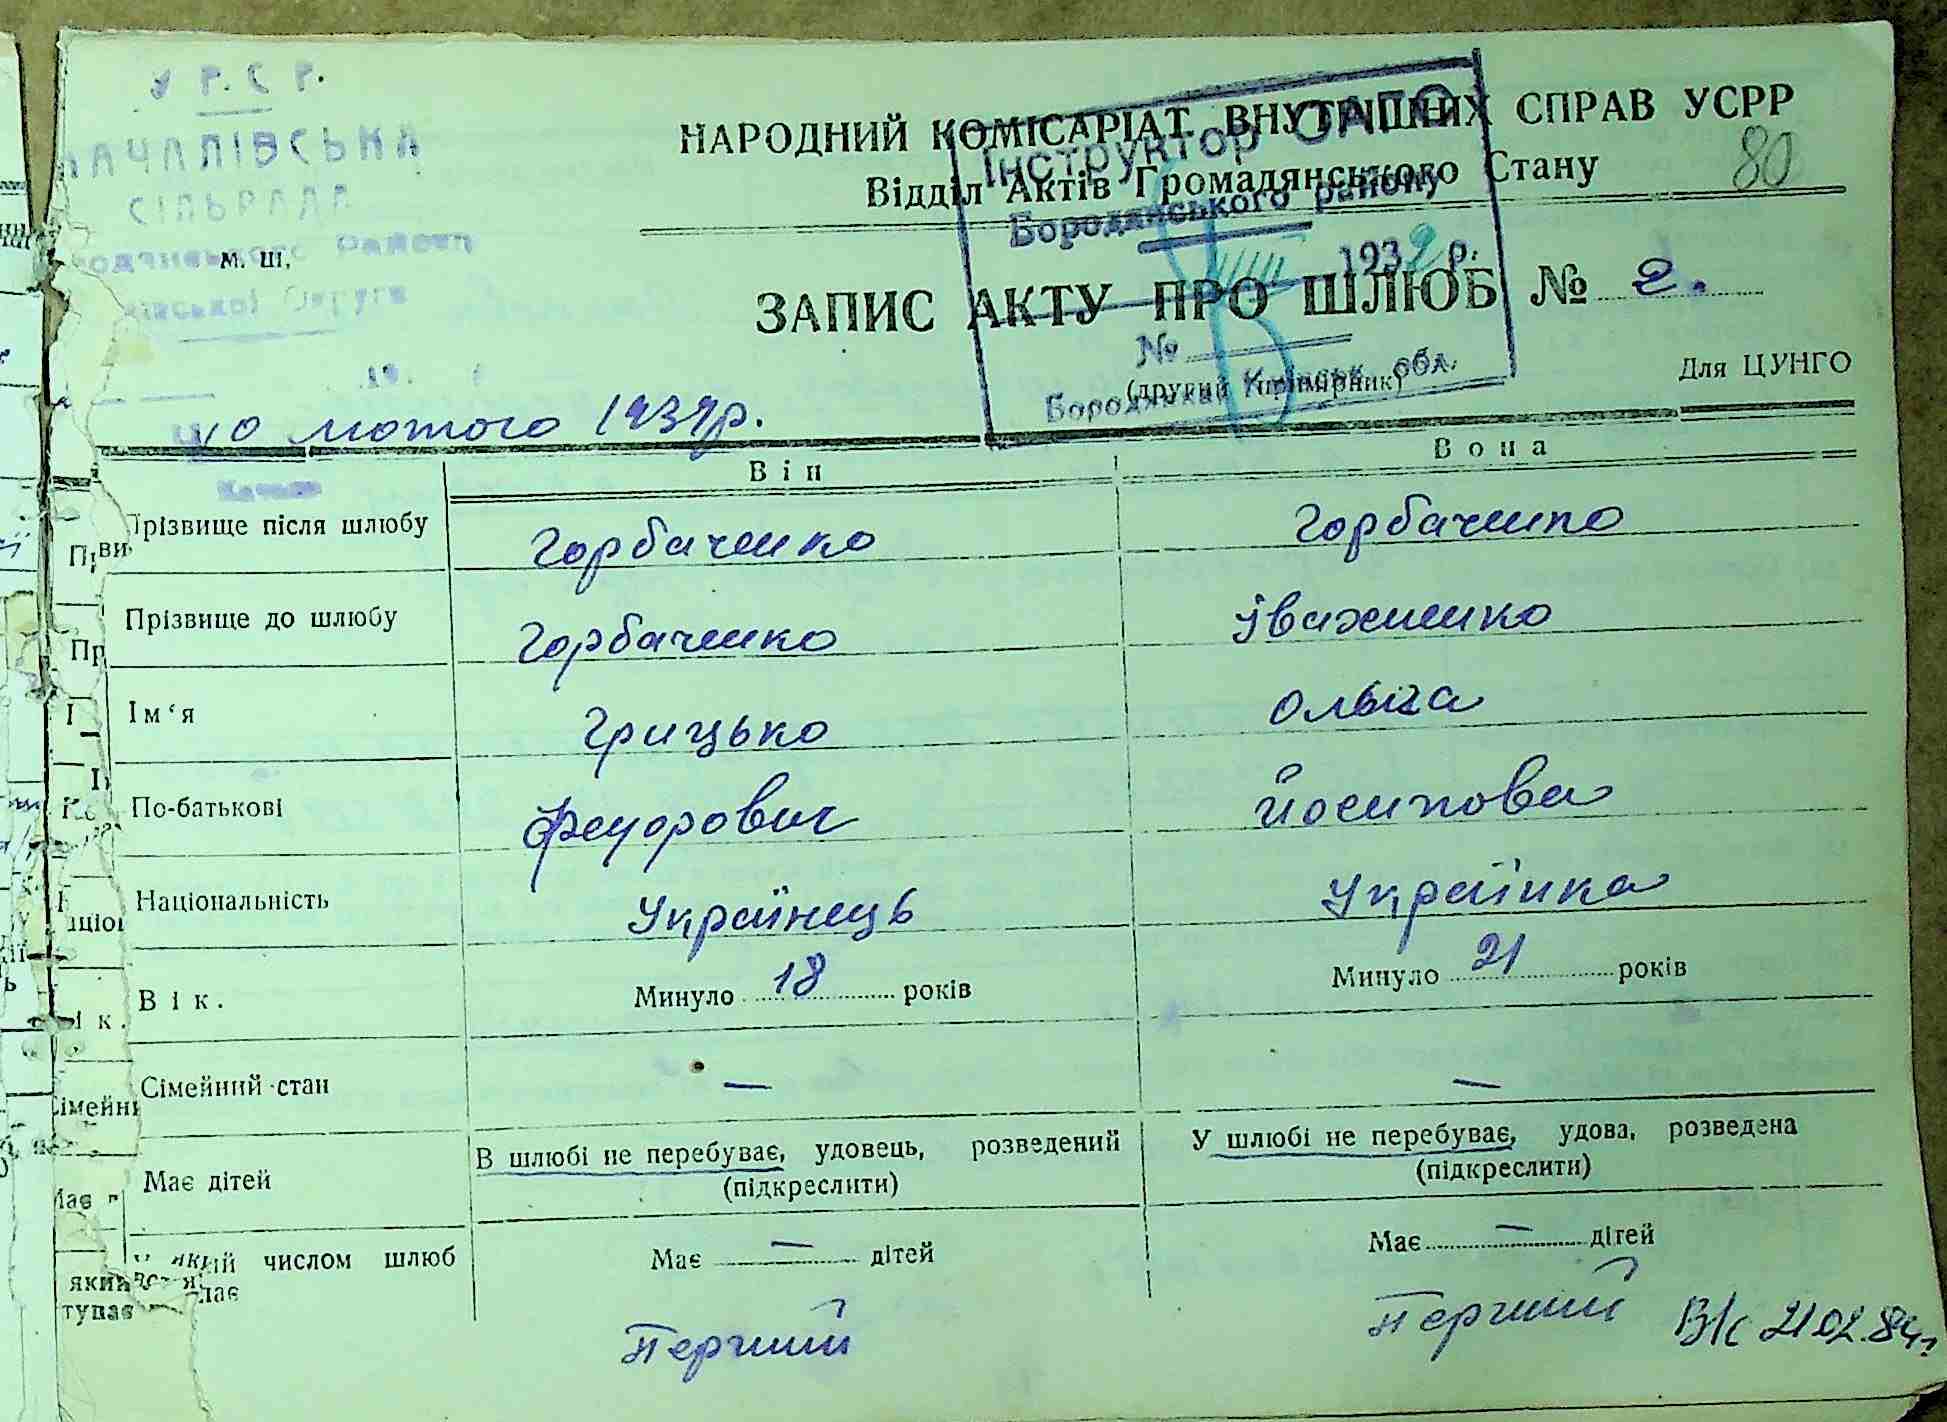 У Р. С Р.
КАЧАЛІВСЬКА
СІЛЬРАДА
м. ш.
НАРОДНИЙ КОМІСАРІАТ ВНУТРІШНІХ СПРАВ УСРР
Відділ Актів Громадянського Стану
80
Інструктор ЗАГС
Бородянського району
193 р.
ЗАПИС АКТУ ПРО ШЛЮБ № 2.
№
(другий примірник)
Київськ. обл.
Для ЦУНГО
10 лютого 1939р.
Він
Вона
Прізвище після шлюбу
Горбаченко
Горбаченко
Прізвище до шлюбу
Горбаченко
Іваженко
Ім'я
Грицько
Ольга
По-батькові
Федорович
Йосипова
Національність
Українець
Українка
Вік.
Минуло 18 років
Минуло 21 років
Сімейний стан
—
—
В шлюбі не перебуває, удовець, розведений
(підкреслити)
У шлюбі не перебуває, удова, розведена
(підкреслити)
Має дітей
Має — дітей
Має — дітей
числом шлюб
Перший
Перший
В/с 21 02.84р.